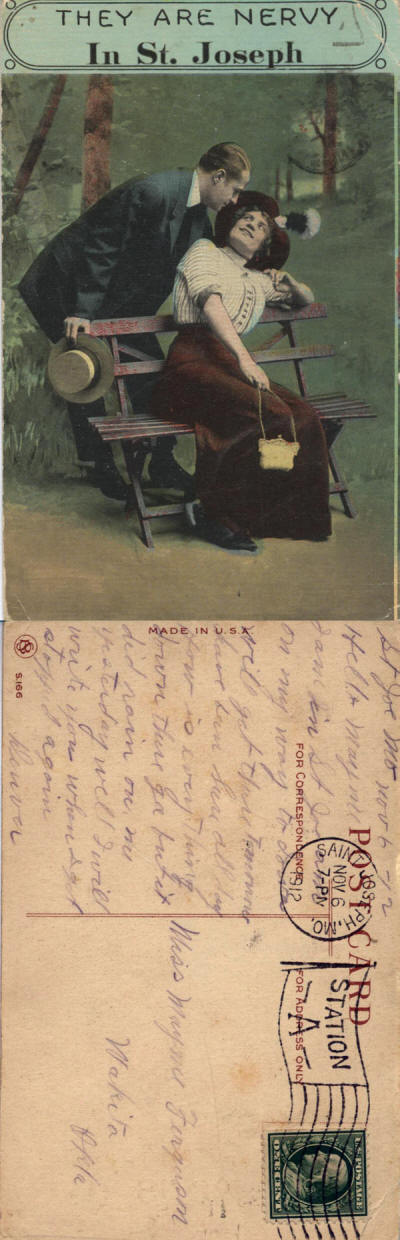 THEY ARE NERVY
In St. Joseph
MADE IN U.S.A.
S.166
POST CARD
FOR CORRESPONDENCE
FOR ADDRESS ONLY
SAINT JOSEPH, MO.
NOV 6
7-PM
1912
STATION
A
U.S. POSTAGE
ONE CENT
St Joe Mo nov 6 - 12
Hello Mayme
I am in St Joe
on my way to
will get there tomorrow
have been here all day
how is everything
down there ya but it
did rain on me
yesterday well I will
write you when I get
stop again
Denver
Miss Mayme Ferguson
Wakita
Okla